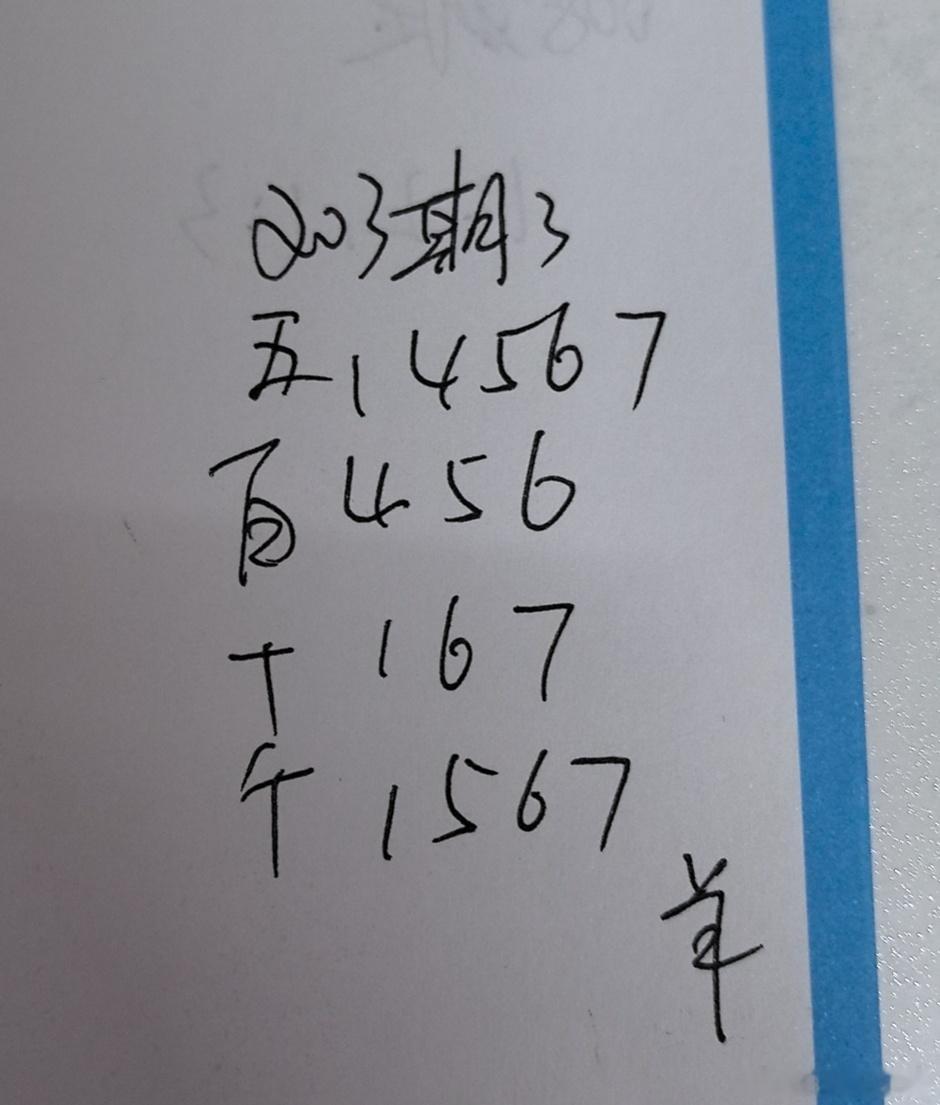 203期3
五14567
百456
十167
千1567